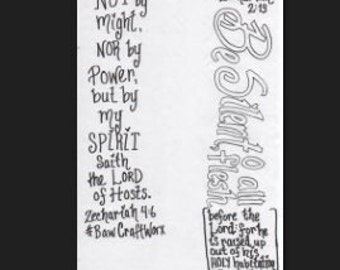 NOT by
might,
NOR by
Power,
but by
my
SPIRIT
Saith
the LORD
of Hosts.
Zechariah 4:6
#BawCraftWorx
2:13
Be Silent, O all
flesh,
before the
Lord: for he
is raised up
out of his
HOLY habitation